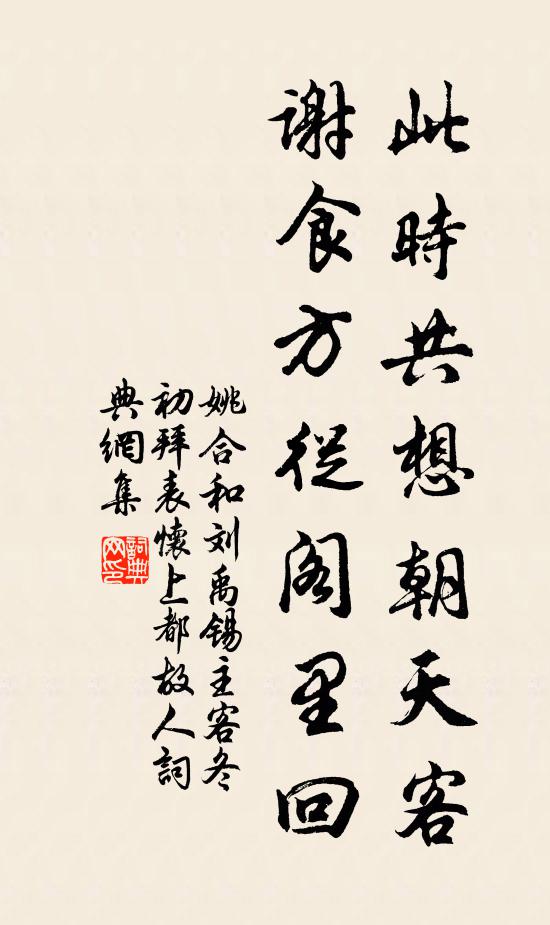 此時共想朝天客
謝食方從閣里回
姚合和刘禹锡主客冬
初拜表懷上都故人詞
典網集
詞典
网印